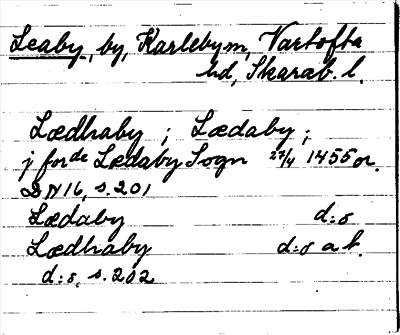 Leaby, by, Karleby sn, Vartofta
hd, Skarab. l.
Lædhaby ; Lædaby ;
j for:de Lædaby Sogn 27/4 1455 or.
DN 16, s. 201
Lædaby d:o
Lædhaby d:o a b.
d:o, s. 202